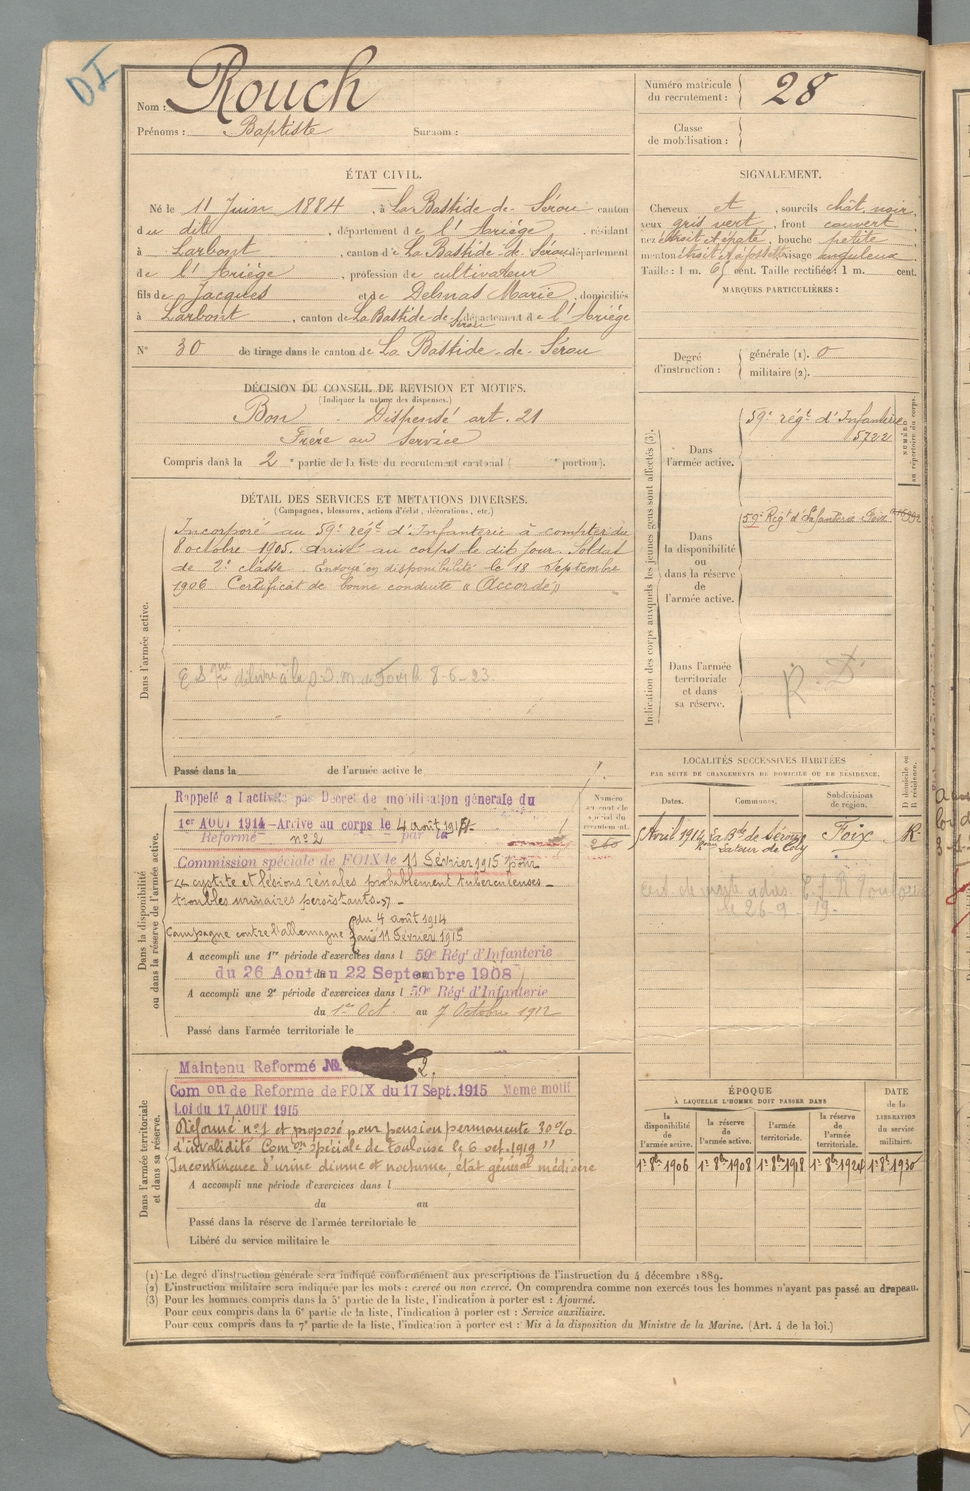 DI
Nom : Rouch
Prénoms : Baptiste Surnom :
Numéro matricule du recrutement : 28
Classe de mobilisation :
ÉTAT CIVIL.
Né le 11 Juin 1884, à La Bastide-de-Sérou canton
du dit, département de l'Ariége, résidant
à Larbont, canton de La Bastide-de-Sérou, département
de l'Ariége, profession de cultivateur
fils de Jacques et de Delmas Marie, domiciliés
à Larbont, canton de La Bastide-de-Sérou département de l'Ariége
N° 30 de tirage dans le canton de La Bastide-de-Sérou
SIGNALEMENT.
Cheveux et, sourcils chât. noir,
yeux gris vert, front couvert,
nez étroit et épaté, bouche petite
menton étroit et à fossette visage anguleux
Taille : 1 m. 65 cent. Taille rectifiée : 1 m. cent.
MARQUES PARTICULIÈRES :
Degré d'instruction : générale (1). 0
militaire (2).
DÉCISION DU CONSEIL DE REVISION ET MOTIFS.
(Indiquer la nature des dispenses.)
Bon. Dispensé art. 21
Frère au Service
Compris dans la 2e partie de la liste du recrutement cantonal ( e portion).
DÉTAIL DES SERVICES ET MUTATIONS DIVERSES.
(Campagnes, blessures, actions d'éclat, décorations, etc.)
Dans l'armée active.
Incorporé au 59e régt d'Infanterie à compter du
8 octobre 1905. Arrivé au corps le dit jour. Soldat
de 2e classe. Envoyé en disponibilité le 18 Septembre
1906 Certificat de bonne conduite « Accordé »
8-6-23
Passé dans la de l'armée active le
Indication des corps auxquels les jeunes gens sont affectés (3).
NUMÉRO au répertoire du corps.
Dans l'armée active.
59e régt d'Infanterie
5722
Dans la disponibilité ou dans la réserve de l'armée active.
59e Régt d'Infanterie Foix
Dans l'armée territoriale et dans sa réserve.
R. D.
Dans la disponibilité ou dans la réserve de l'armée active.
Rappelé a l'activité par Decret de mobilisation générale du
1er AOUT 1914 - Arrive au corps le 4 août 1914
Réformé n° 2 par la
Commission spéciale de FOIX le 11 Février 1915 pour
« cystite et lésions rénales probablement tuberculeuses -
troubles urinaires persistants. »
Campagne contre l'allemagne du 4 août 1914
au 11 Février 1915
A accompli une 1re période d'exercices dans l 59e Régt d'Infanterie
du 26 Aout au 22 Septembre 1908
A accompli une 2e période d'exercices dans l 59e Régt d'Infanterie
du 1er Oct. au 7 Octobre 1912
Passé dans l'armée territoriale le
Numéro au contrôle spécial du recrutement.
260
LOCALITÉS SUCCESSIVES HABITÉES
PAR SUITE DE CHANGEMENTS DE DOMICILE OU DE RÉSIDENCE.
Dates. Communes. Subdivisions de région. D domicile ou R résidence.
5 Avril 1914 La Bde de Sérou Foix R.
Dans l'armée territoriale et dans sa réserve.
Maintenu Reformé No 2.
Comon de Reforme de FOIX du 17 Sept. 1915 Meme motif
Loi du 17 AOUT 1915
Réformé n° 1 et proposé pour pension permanente 30%
d'invalidité Comon Spéciale de toulouse le 6 oct. 1919 "
Incontinence d'urine diurne et nocturne, état général médiocre
A accompli une période d'exercices dans l
du au
Passé dans la réserve de l'armée territoriale le
Libéré du service militaire le
ÉPOQUE
À LAQUELLE L'HOMME DOIT PASSER DANS
la disponibilité de l'armée active. la réserve de l'armée active. l'armée territoriale. la réserve de l'armée territoriale. DATE de la LIBÉRATION du service militaire.
1er 8bre 1906 1er 8bre 1908 1er 8bre 1918 1er 8bre 1924 1er 8bre 1930
(1) Le degré d'instruction générale sera indiqué conformément aux prescriptions de l'instruction du 4 décembre 1889.
(2) L'instruction militaire sera indiquée par les mots : exercé ou non exercé. On comprendra comme non exercés tous les hommes n'ayant pas passé au drapeau.
(3) Pour les hommes compris dans la 5e partie de la liste, l'indication à porter est : Ajourné.
Pour ceux compris dans la 6e partie de la liste, l'indication à porter est : Service auxiliaire.
Pour ceux compris dans la 7e partie de la liste, l'indication à porter est : Mis à la disposition du Ministre de la Marine. (Art. 4 de la loi.)